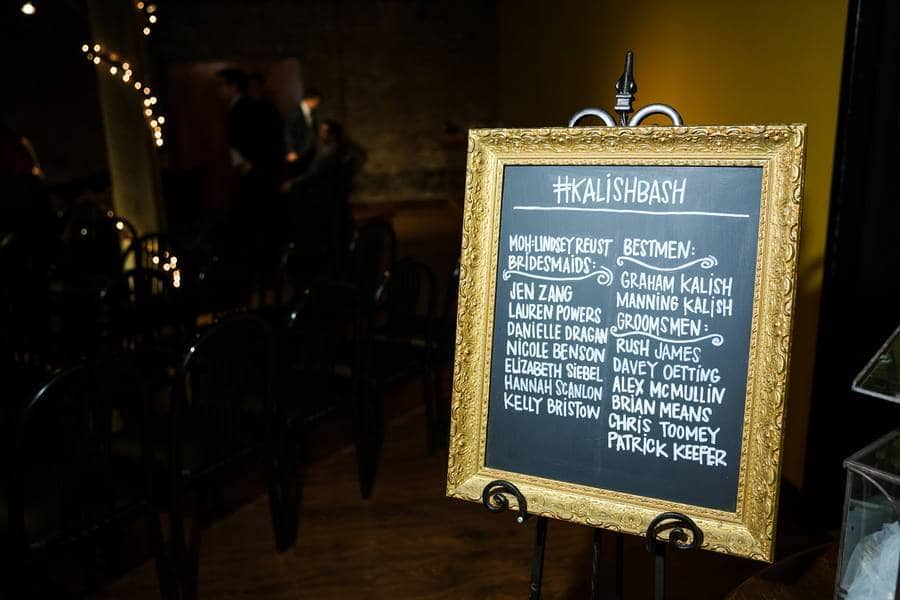 #KALISHBASH
MOH:LINDSEY REUST
BRIDESMAIDS:
JEN ZANG
LAUREN POWERS
DANIELLE DRAGAN
NICOLE BENSON
ELIZABETH SIEBEL
HANNAH SCANLON
KELLY BRISTOW
BESTMEN:
GRAHAM KALISH
MANNING KALISH
GROOMSMEN:
RUSH JAMES
DAVEY OETTING
ALEX MCMULLIN
BRIAN MEANS
CHRIS TOOMEY
PATRICK KEEFER